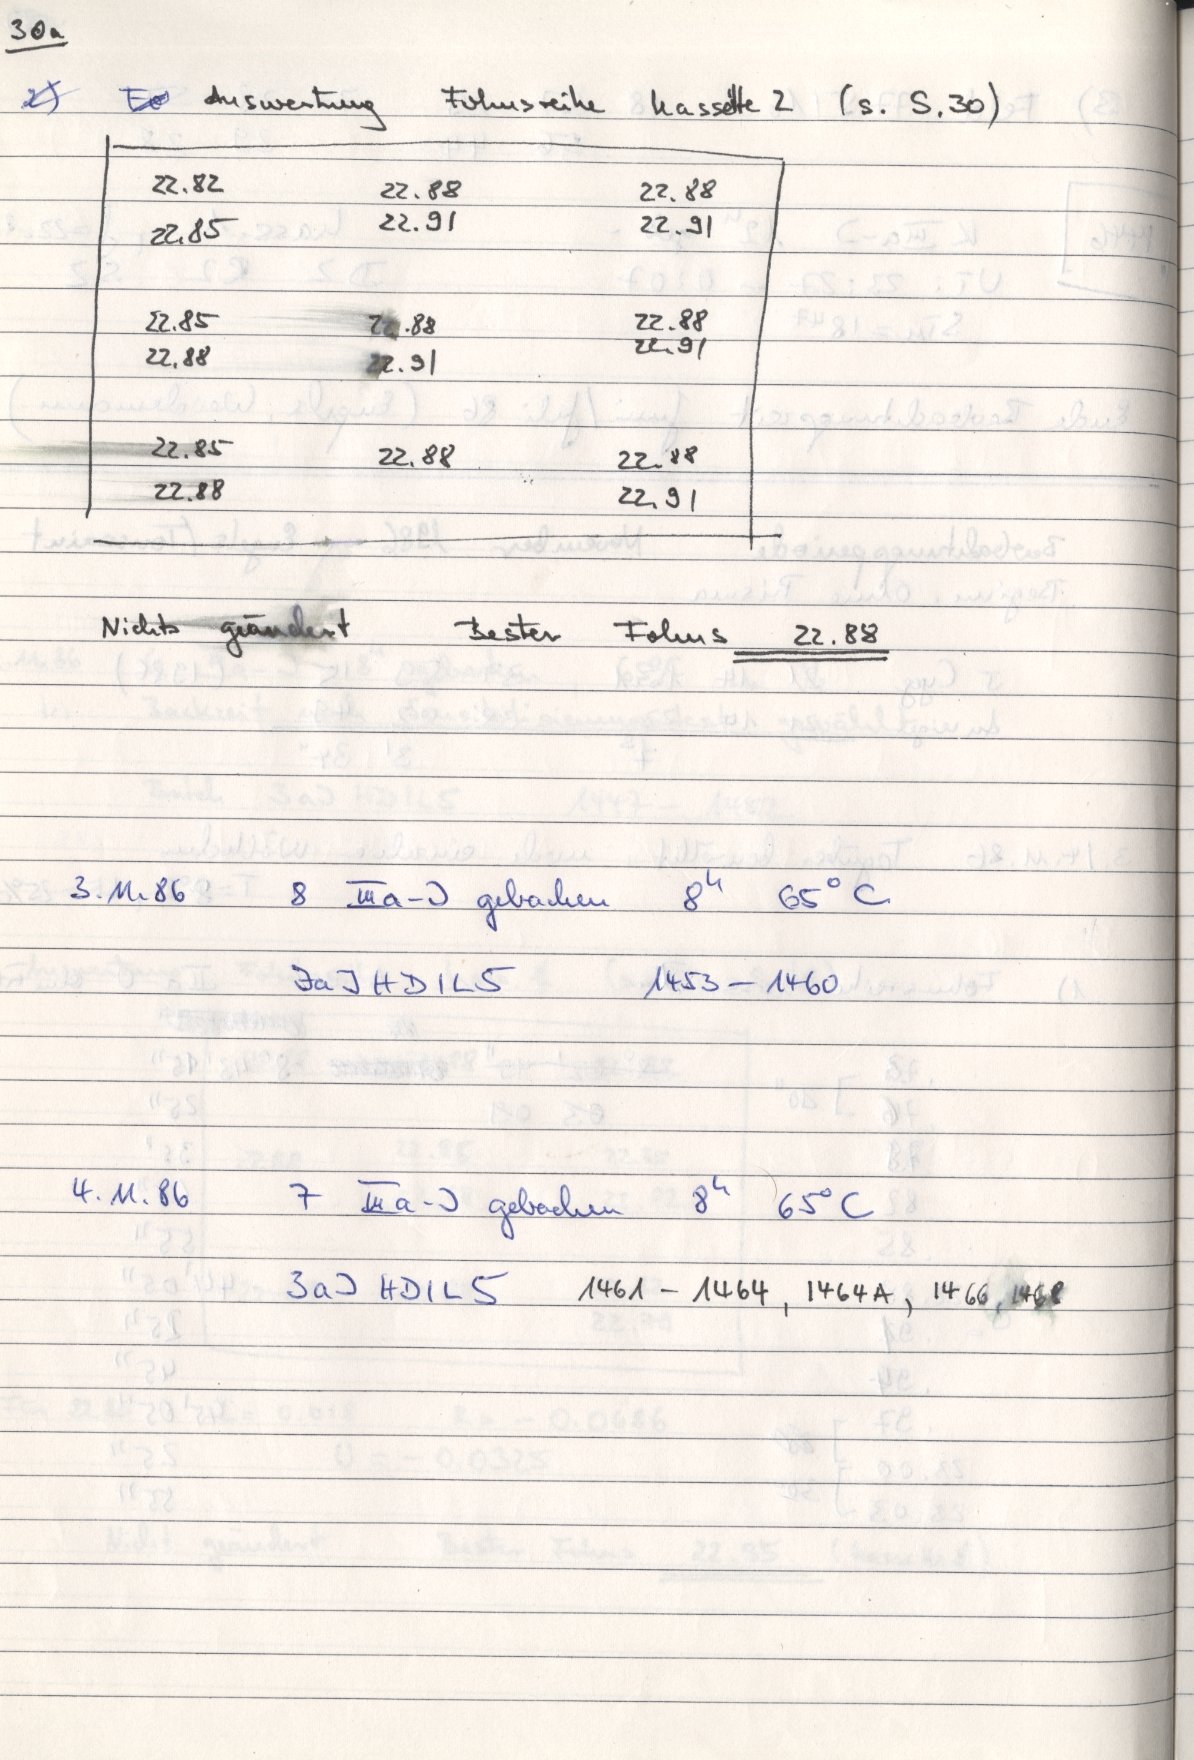 30a
2) Auswertung Fokusreihe Kassette 2 (s. S.30)
22.82 22.88 22.88
22.85 22.91 22.91
22.85 22.88 22.88
22.88 22.91 22.91
22.85 22.88 22.88
22.88 22.91
Nichts geändert Bester Fokus 22.88
3.11.86 8 IIIa-J gebacken 8h 65°C
3aJ HD1L5 1453 – 1460
4.11.86 7 IIIa-J gebacken 8h 65°C
3aJ HD1L5 1461 – 1464, 1464A, 1466, 1468